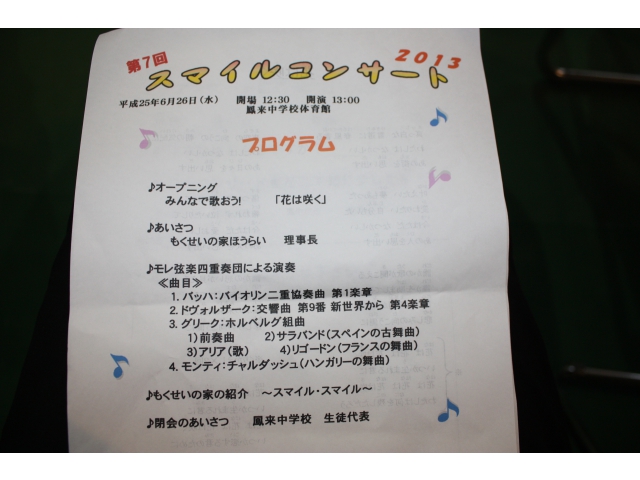 第7回
スマイルコンサート
2013
平成25年6月26日(水) 開場 12:30 開演 13:00
鳳来中学校体育館
プログラム
♪オープニング
みんなで歌おう! 「花は咲く」
♪あいさつ
もくせいの家ほうらい 理事長
♪モレ弦楽四重奏団による演奏
≪曲目≫
1. バッハ:バイオリン二重協奏曲 第1楽章
2. ドヴォルザーク:交響曲 第9番 新世界から 第4楽章
3. グリーク:ホルベルグ組曲
1)前奏曲 2)サラバンド(スペインの古舞曲)
3)アリア(歌) 4)リゴードン(フランスの舞曲)
4. モンティ:チャルダッシュ(ハンガリーの舞曲)
♪もくせいの家の紹介 ~スマイル・スマイル~
♪閉会のあいさつ 鳳来中学校 生徒代表